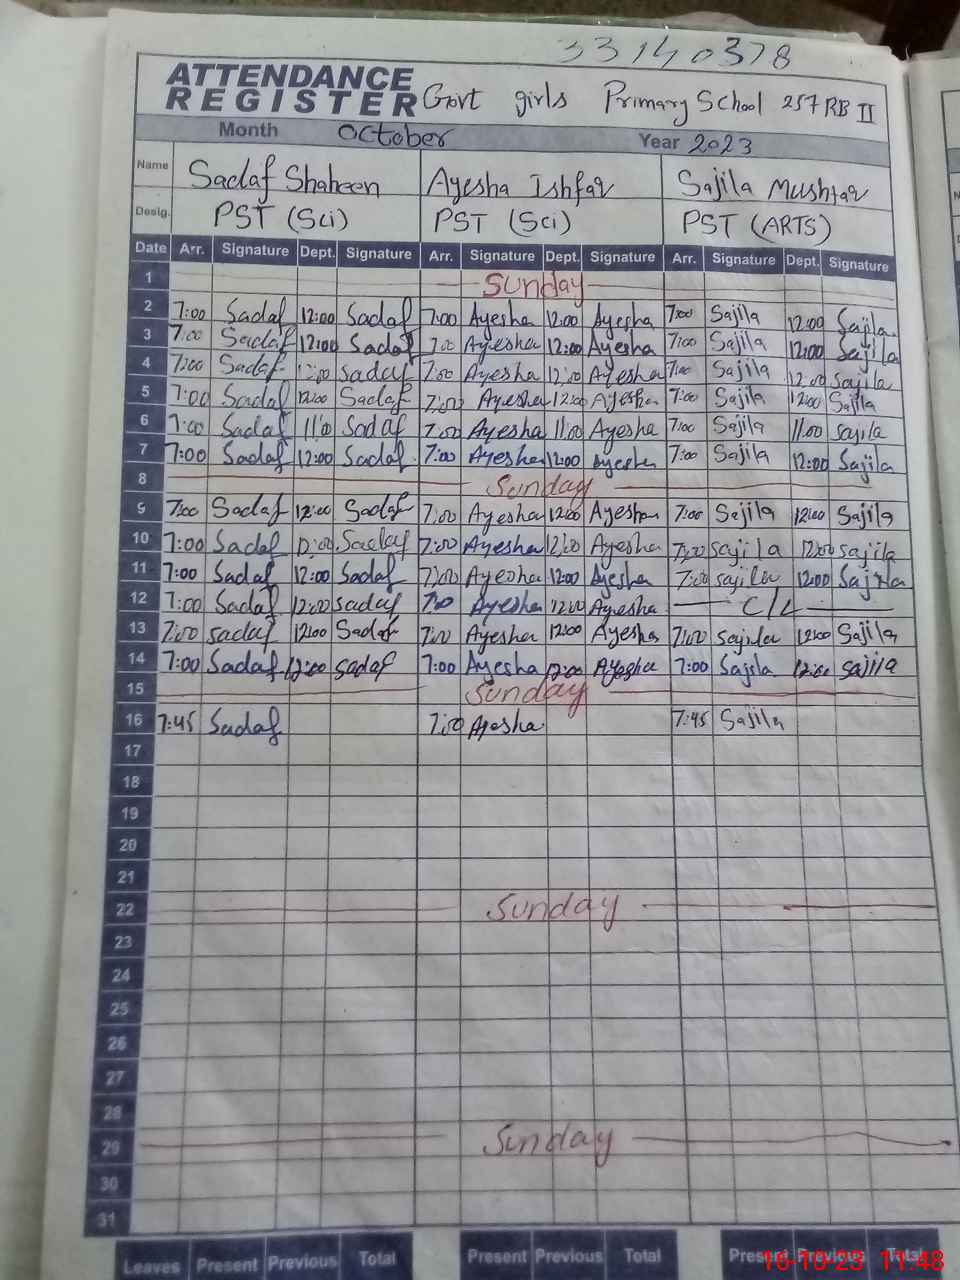 33140378
ATTENDANCE
REGISTER Govt girls Primary School 257 RB II
Month October Year 2023
Name Sadaf Shaheen Ayesha Ishfaq Sajila Mushtaq
Desig. PST (Sci) PST (Sci) PST (ARTS)
Date Arr. Signature Dept. Signature Arr. Signature Dept. Signature Arr. Signature Dept. Signature
1 Sunday
2 7:00 Sadaf 12:00 Sadaf 7:00 Ayesha 12:00 Ayesha 7:00 Sajila 12:00 Sajila
3 7:00 Sadaf 12:00 Sadaf 7:00 Ayesha 12:00 Ayesha 7:00 Sajila 12:00 Sajila
4 7:00 Sadaf 12:00 Sadaf 7:00 Ayesha 12:00 Ayesha 7:00 Sajila 12:00 Sajila
5 7:00 Sadaf 12:00 Sadaf 7:00 Ayesha 12:00 Ayesha 7:00 Sajila 12:00 Sajila
6 7:00 Sadaf 11:00 Sadaf 7:00 Ayesha 11:00 Ayesha 7:00 Sajila 11:00 Sajila
7 7:00 Sadaf 12:00 Sadaf 7:00 Ayesha 12:00 Ayesha 7:00 Sajila 12:00 Sajila
8 Sunday
9 7:00 Sadaf 12:00 Sadaf 7:00 Ayesha 12:00 Ayesha 7:00 Sajila 12:00 Sajila
10 7:00 Sadaf 12:00 Sadaf 7:00 Ayesha 12:00 Ayesha 7:00 Sajila 12:00 Sajila
11 7:00 Sadaf 12:00 Sadaf 7:00 Ayesha 12:00 Ayesha 7:00 Sajila 12:00 Sajila
12 7:00 Sadaf 12:00 Sadaf 7:00 Ayesha 12:00 Ayesha C/L
13 7:00 Sadaf 12:00 Sadaf 7:00 Ayesha 12:00 Ayesha 7:00 Sajila 12:00 Sajila
14 7:00 Sadaf 12:00 Sadaf 7:00 Ayesha 12:00 Ayesha 7:00 Sajila 12:00 Sajila
15 Sunday
16 7:45 Sadaf 7:50 Ayesha 7:45 Sajila
17
18
19
20
21
22 Sunday
23
24
25
26
27
28
29 Sunday
30
31
Leaves Present Previous Total Present Previous Total Present Previous Total
16-10-23 11:48